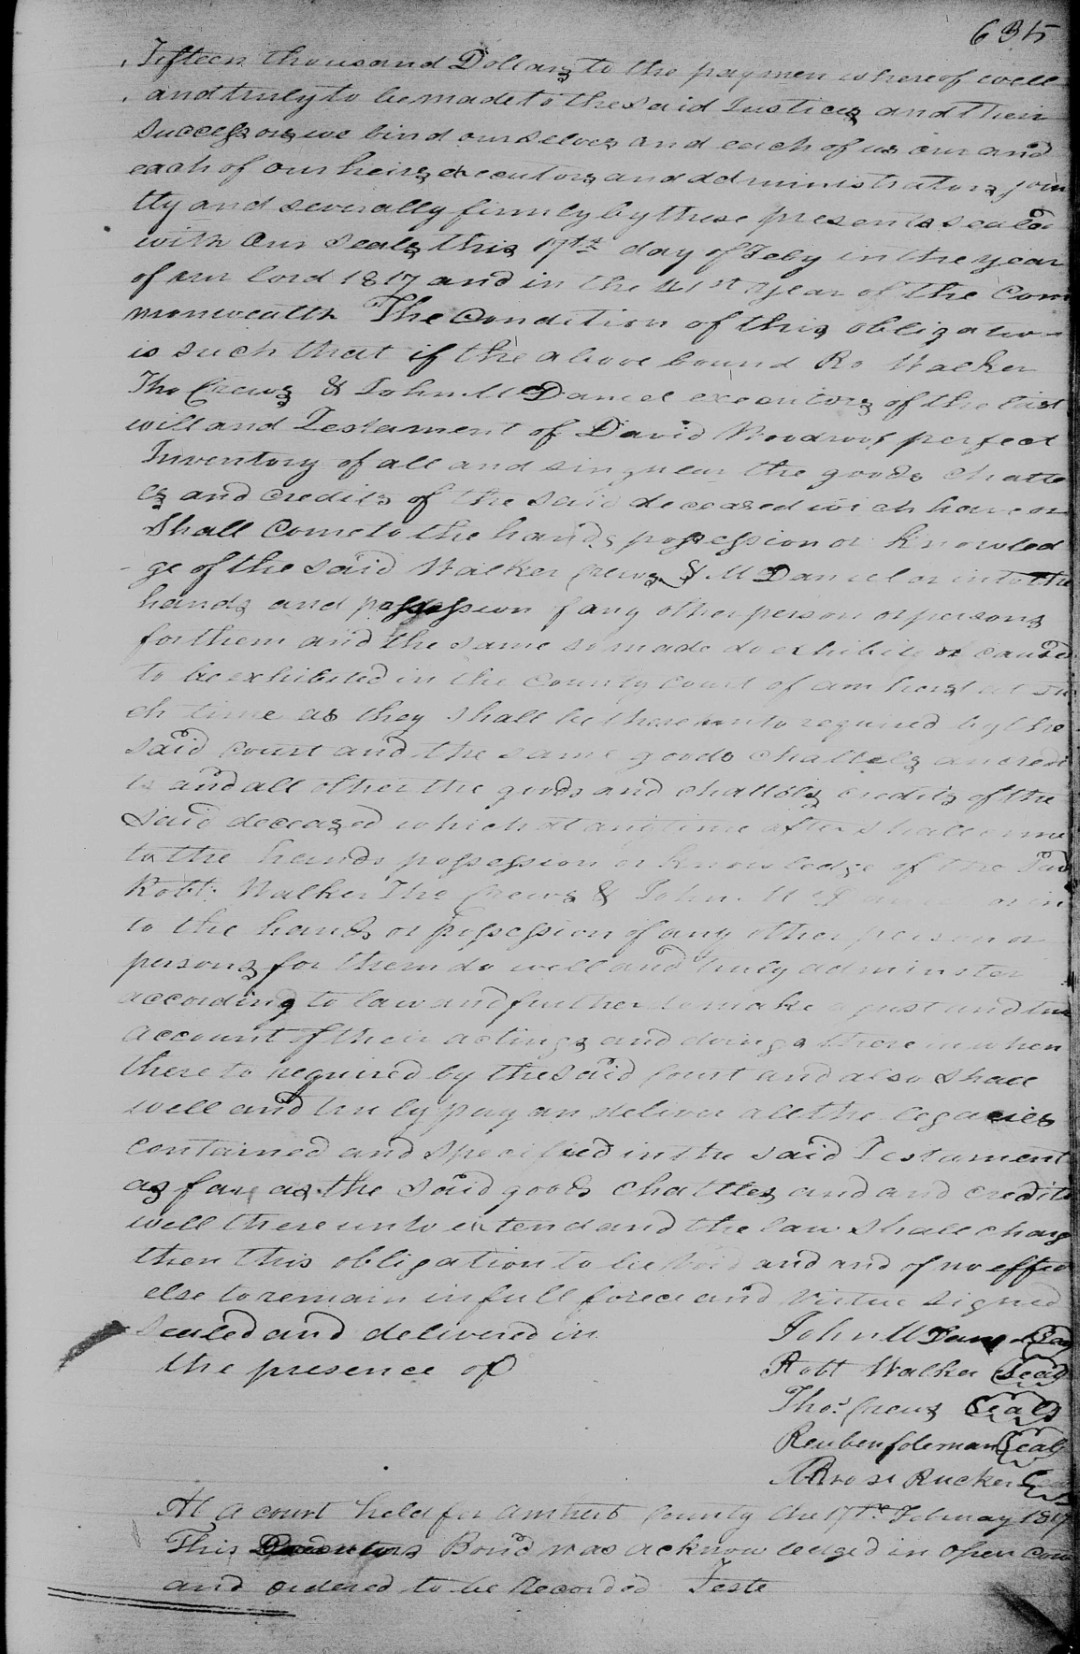 635
Fifteen thousand Dollars to the paymen whereof well
and truly to be made to the said Justices and their
Successors we bind ourselves and each of us our and
each of our heirs executors and administrators join
tly and severally firmly by these presents seald
with Our Seals this 17th day of Feby in the year
of our lord 1817 and in the 41st year of the Com
monwealth The Condition of this obligation
is such that if the above bound Ro Walker
Tho Crews & John McDaniel executors of the last
will and Testament of David Woodroof perfect
Inventory of all and singular the goods chatte
ls and credits of the said deceased wich have or
Shall Come to the hands possession or Knowled
ge of the said Walker Crews & McDaniel or into the
hands and possession of any other person or persons
for them and the same so made do exhibit or caused
to be exhibited in the County Court of amherst at su
ch time as they shall be thereunto required by the
said court and the same goods chattels and credi
ts and all other the goods and chattels credits of the
Said deceased which at any time after shall come
to the hands possession or knowledge of the said
Robt. Walker Tho Crews & John McDaniel or in
to the hands or possession of any other person or
persons for them do well and truly adminster
according to law and further do make a just and true
account of their actings and doings therein when
there to required by the said Court and also shall
well and truly pay an deliver all the legacies
contained and specified in the said Testament
as far as the said goods Chattles and and credits
will there unto extend and the law shall charge
then this obligation to be void and and of no effect
else to remain in full force and virtue signed
sealed and delivered in
the presence of
John McDaniel Seal
Robt Walker Seal
Thos. Crews Seal
Reuben Coleman Seal
Ambrose Rucker Seal
At a court held for Amherst County the 17th February 1817
This Executors Bond was acknowledged in Open Court
and ordered to be Recorded Teste